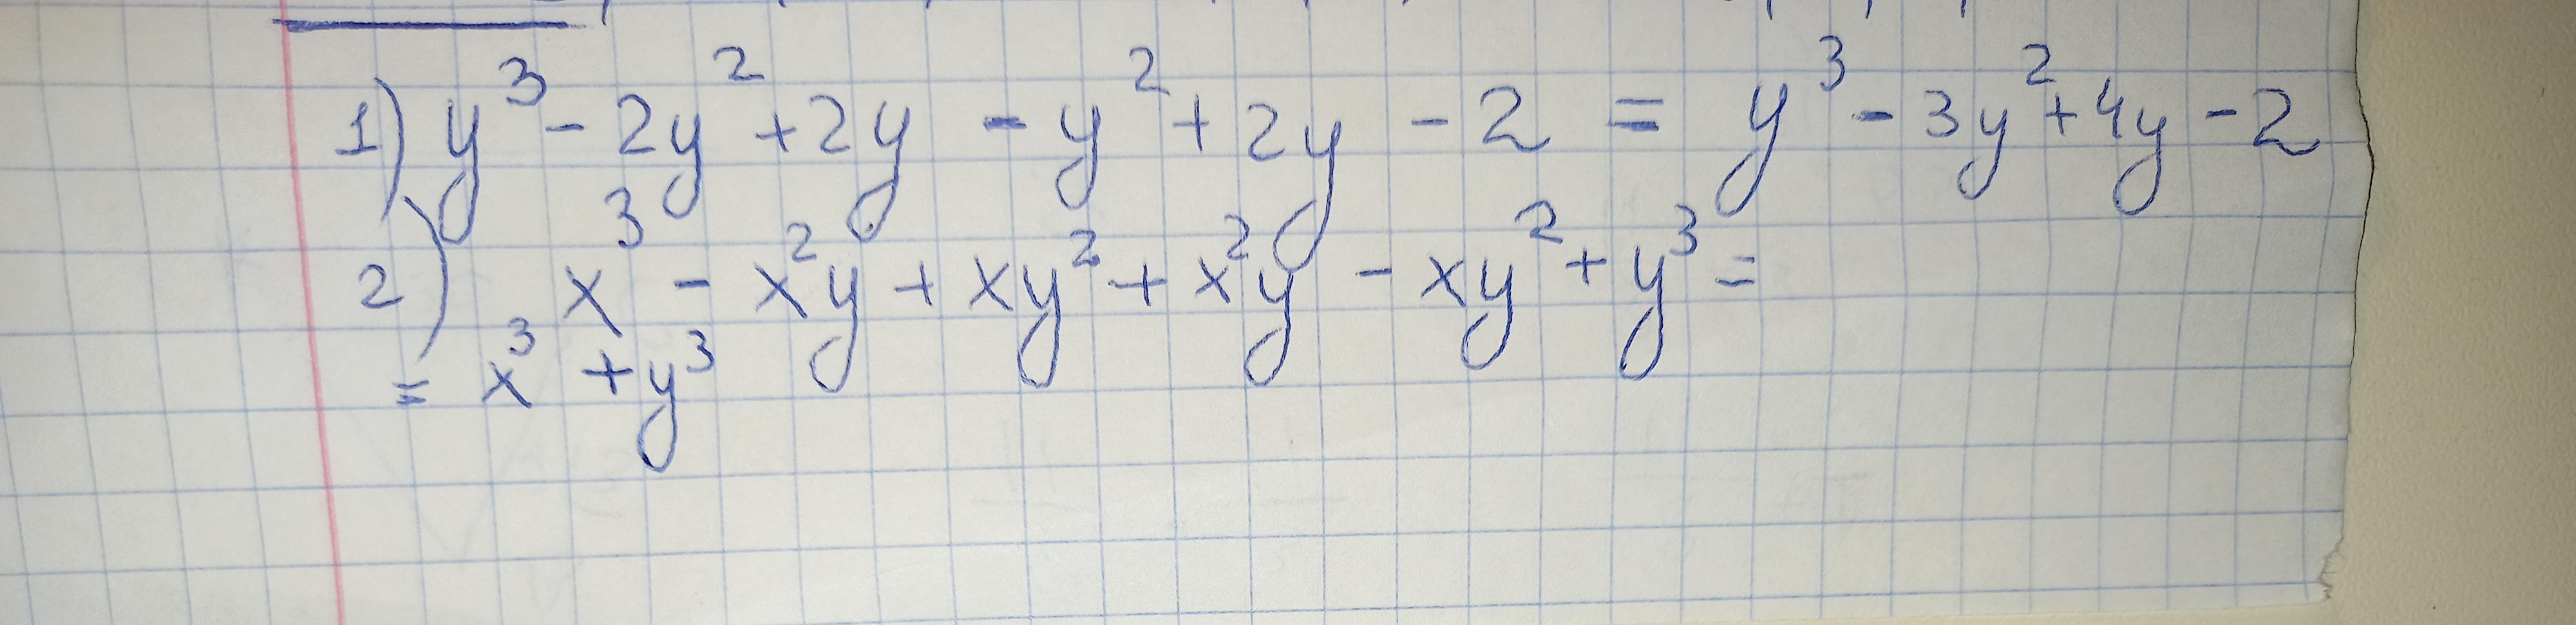 1) y³ - 2y² + 2y - y² + 2y - 2 = y³ - 3y² + 4y - 2
2) x³ - x²y + xy² + x²y - xy² + y³ =
= x³ + y³